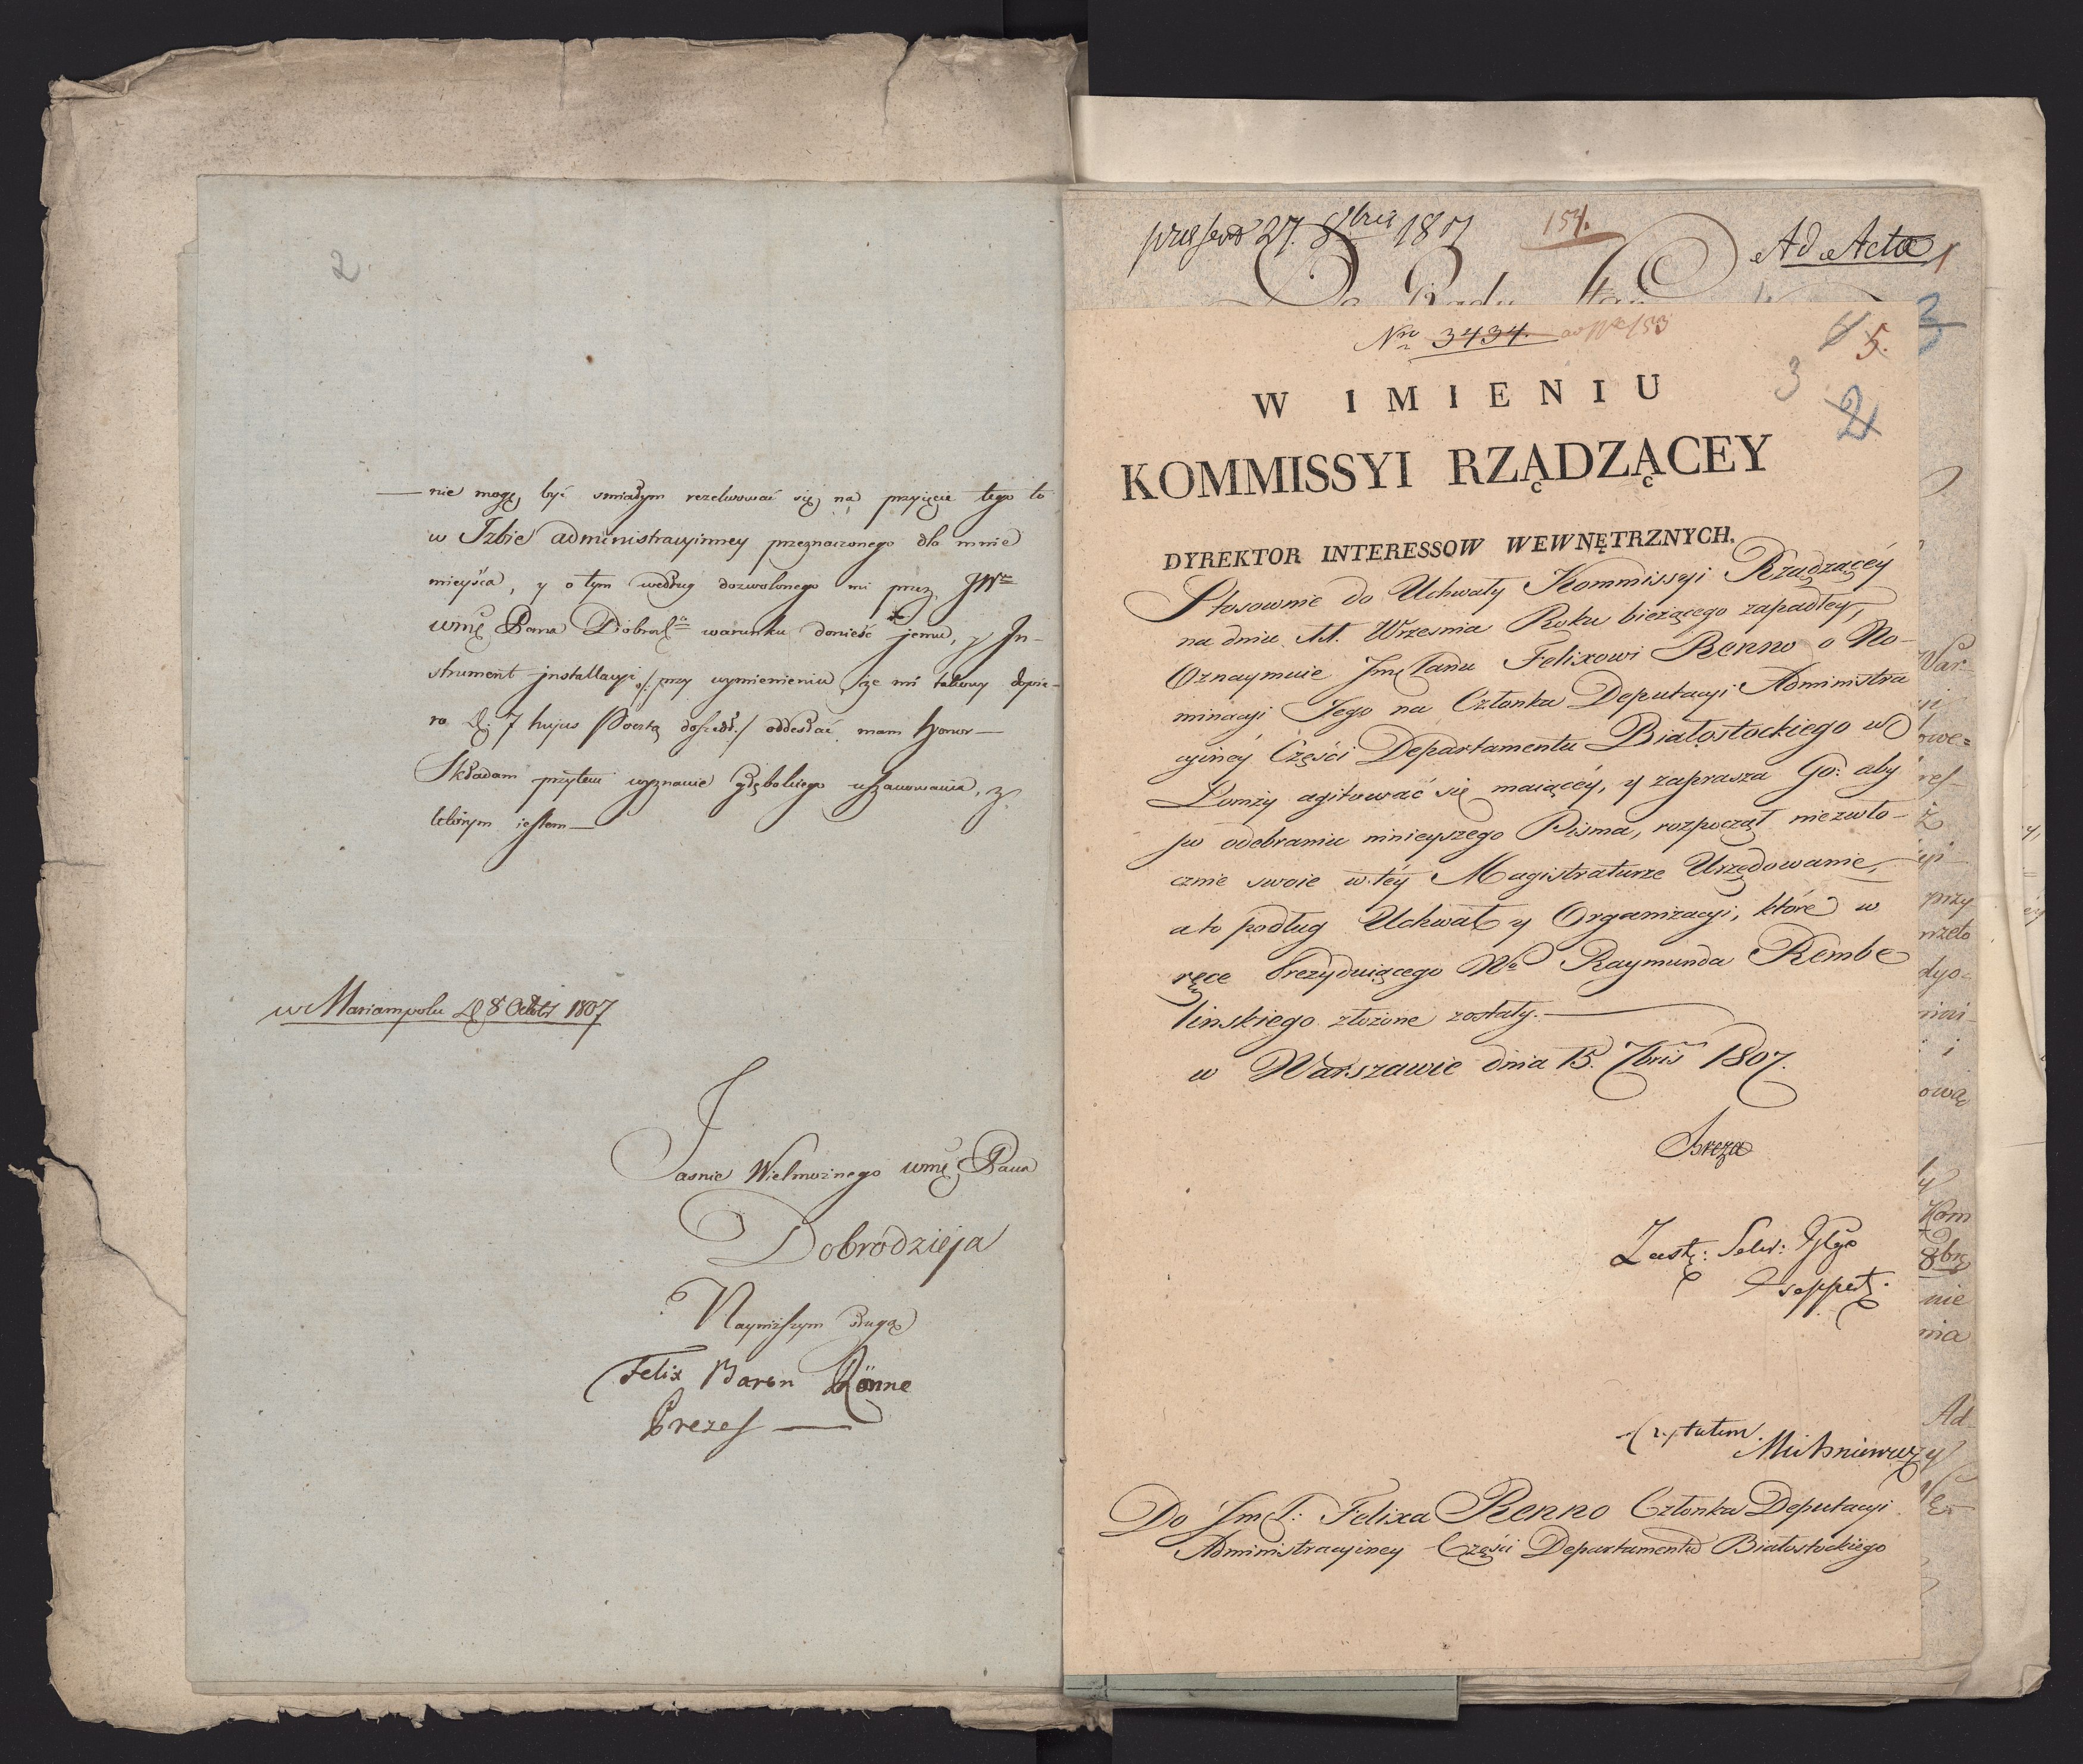 2
— nie mogę być smiałym rezolwować się na przyięcie tego to
w Izbie administracyinney przeznaczonego dla mnie
mieysca, y o tym według dozwolonego mi przez JW
wmę Pana Dobrod. warunku donieść jemu, y In-
strument installacyi /: przy wymienieniu że mi takowy dopie-
ro D. 7 hujus Pocztą doszedł :/ oddesłać mam honor —
Składam przytem wyznanie głębokiego uszanowania, z
którym iestem —
w Mariampolu D 8 Octobr 1807
Jasnie Wielmożnego wmę Pana
Dobrodzieja
Nayniższym sługą
Felix Baron Rönne
Prezes —
27. 8bris 1807
154.
Ad Acta
1
Do Rady
3
Nro 3434. ad Nr 153
5.
3
2
W IMIENIU
KOMMISSYI RZĄDZĄCEY
DYREKTOR INTERESSOW WEWNĘTRZNYCH.
Stosownie do Uchwały Kommissyi Rządzącéy
na dniu 11. Wrzesnia Roku bieżącego zapadłey,
Oznaymuie Jmę Panu Felixowi Renno o No-
minacyi Jego na Członka Deputacyi Administra
cyinéy Części Departamentu Białostockiego w
Łomży agitować się maiącéy, y zaprasza Go: aby
po odebraniu ninieyszego Pisma, rozpoczął niezwło-
cznie swoie w téy Magistraturze Urzędowanie,
a to podług Uchwał y Organizacyi, które w
ręce Prezyduiącego We Raymunda Rembe
linskiego złożone zostały. —
w Warszawie dnia 15. 7bris 1807.
Breza
Zastę: Sekr: Jlgo
Do Jm P: Felixa Renno Członka Deputacyi
Administracyiney Części Departamentu Białostockiego